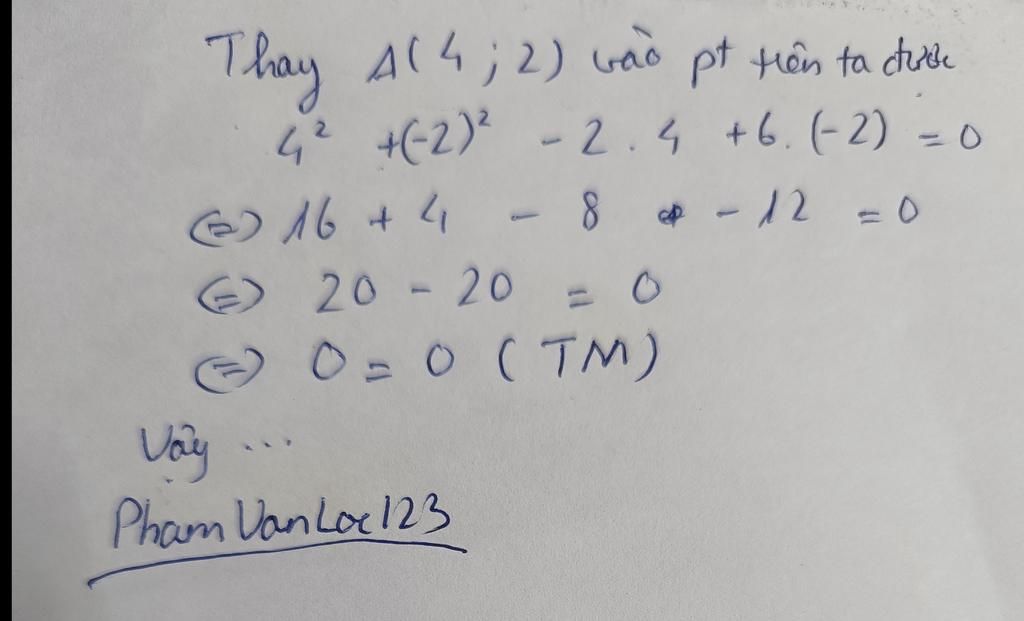 Thay A(4 ; 2) vào pt trên ta được
4² +(-2)² - 2 . 4 +6. (-2) = 0
(=) 16 + 4 - 8 - 12 = 0
(=) 20 - 20 = 0
(=) 0 = 0 (TM)
Vậy ...
Pham Van Loc123